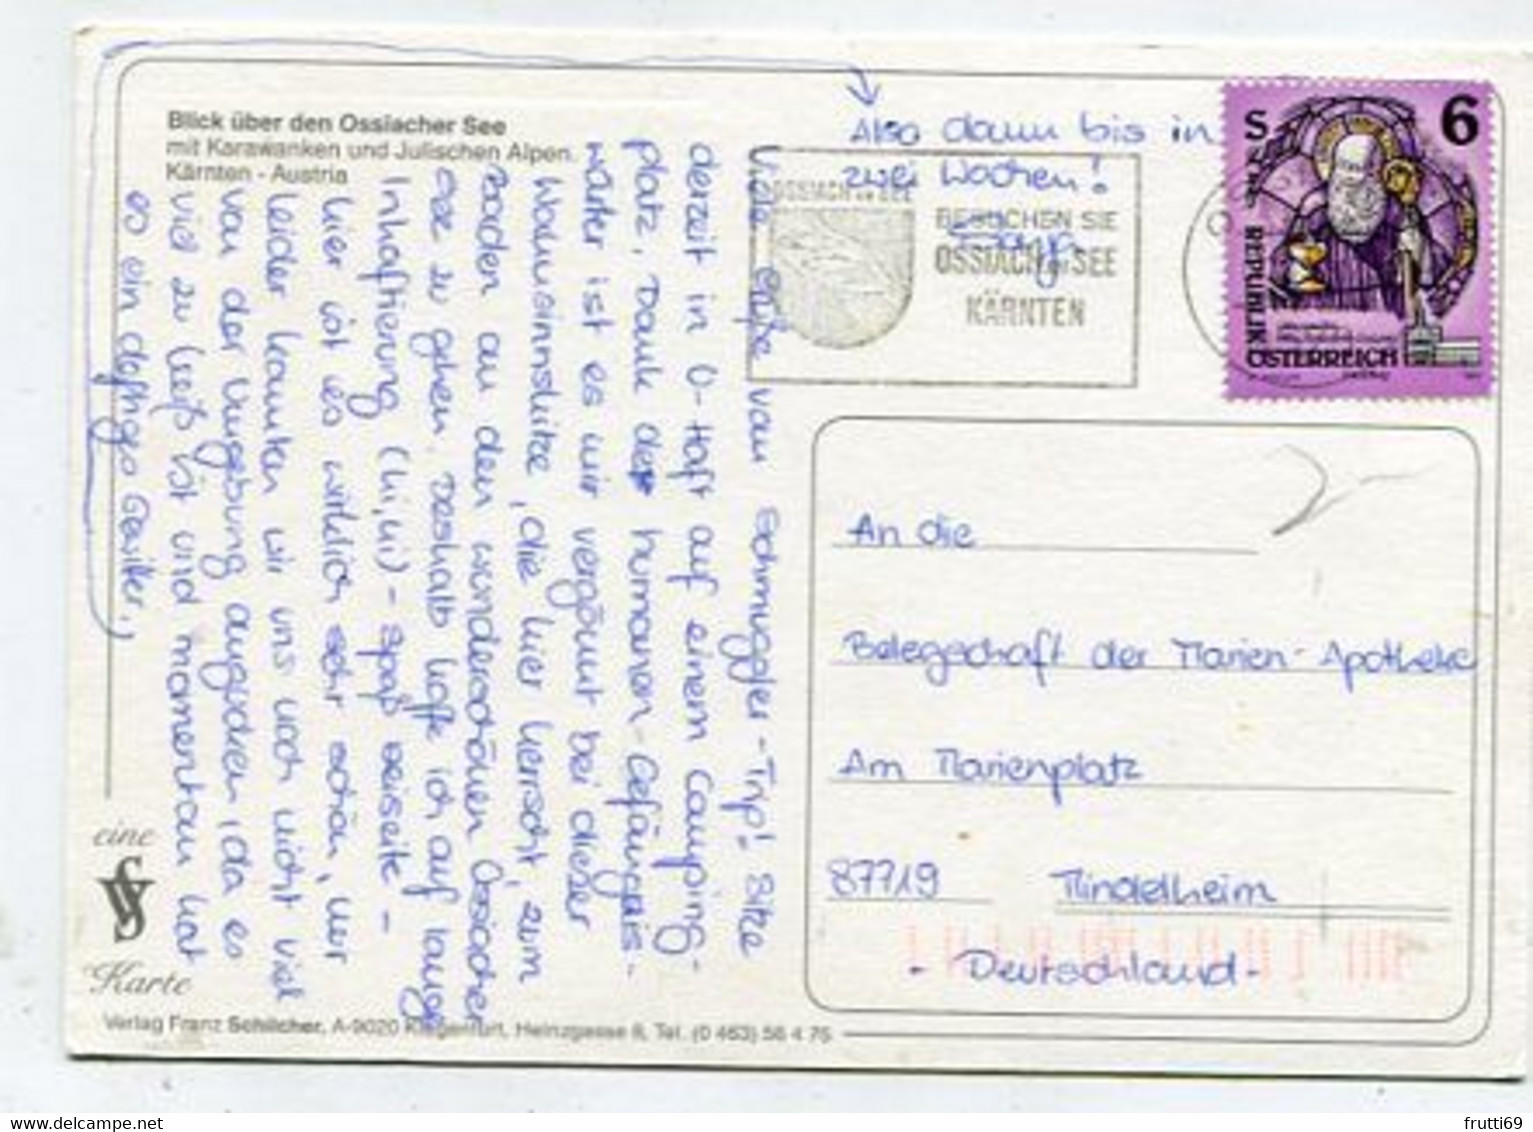 Blick über den Ossiacher See
mit Karawanken und Julischen Alpen
Kärnten - Austria
Viele Grüße vom Schmuggler-Trip! Sitze
derzeit in U-Haft auf einem Camping-
platz. Dank der humanen Gefängnis-
wärter ist es mir vergönnt bei dieser
Wahnsinnshitze, die hier herrscht, zum
Baden an den wunderschönen Ossiacher
See zu gehen. Deshalb hoffe ich auf lange
Inhaftierung (hi, hi) - Spaß beiseite -
hier ist es wirklich sehr schön, nur
leider konnten wir uns noch nicht viel
von der Umgebung angucken, da es
viel zu heiß ist und momentan hat
es ein deftiges Gewitter,
Also dann bis in
zwei Wochen!
OSSIACH am SEE
BESUCHEN SIE
OSSIACH am SEE
KÄRNTEN
S 6
REPUBLIK
ÖSTERREICH
An die
Belegschaft der Marien-Apotheke
Am Marienplatz
87719 Mindelheim
- Deutschland -
eine
Karte
Verlag Franz Schilcher, A-9020 Klagenfurt, Heinzgasse 6, Tel. (0 463) 56 4 75
frutti69